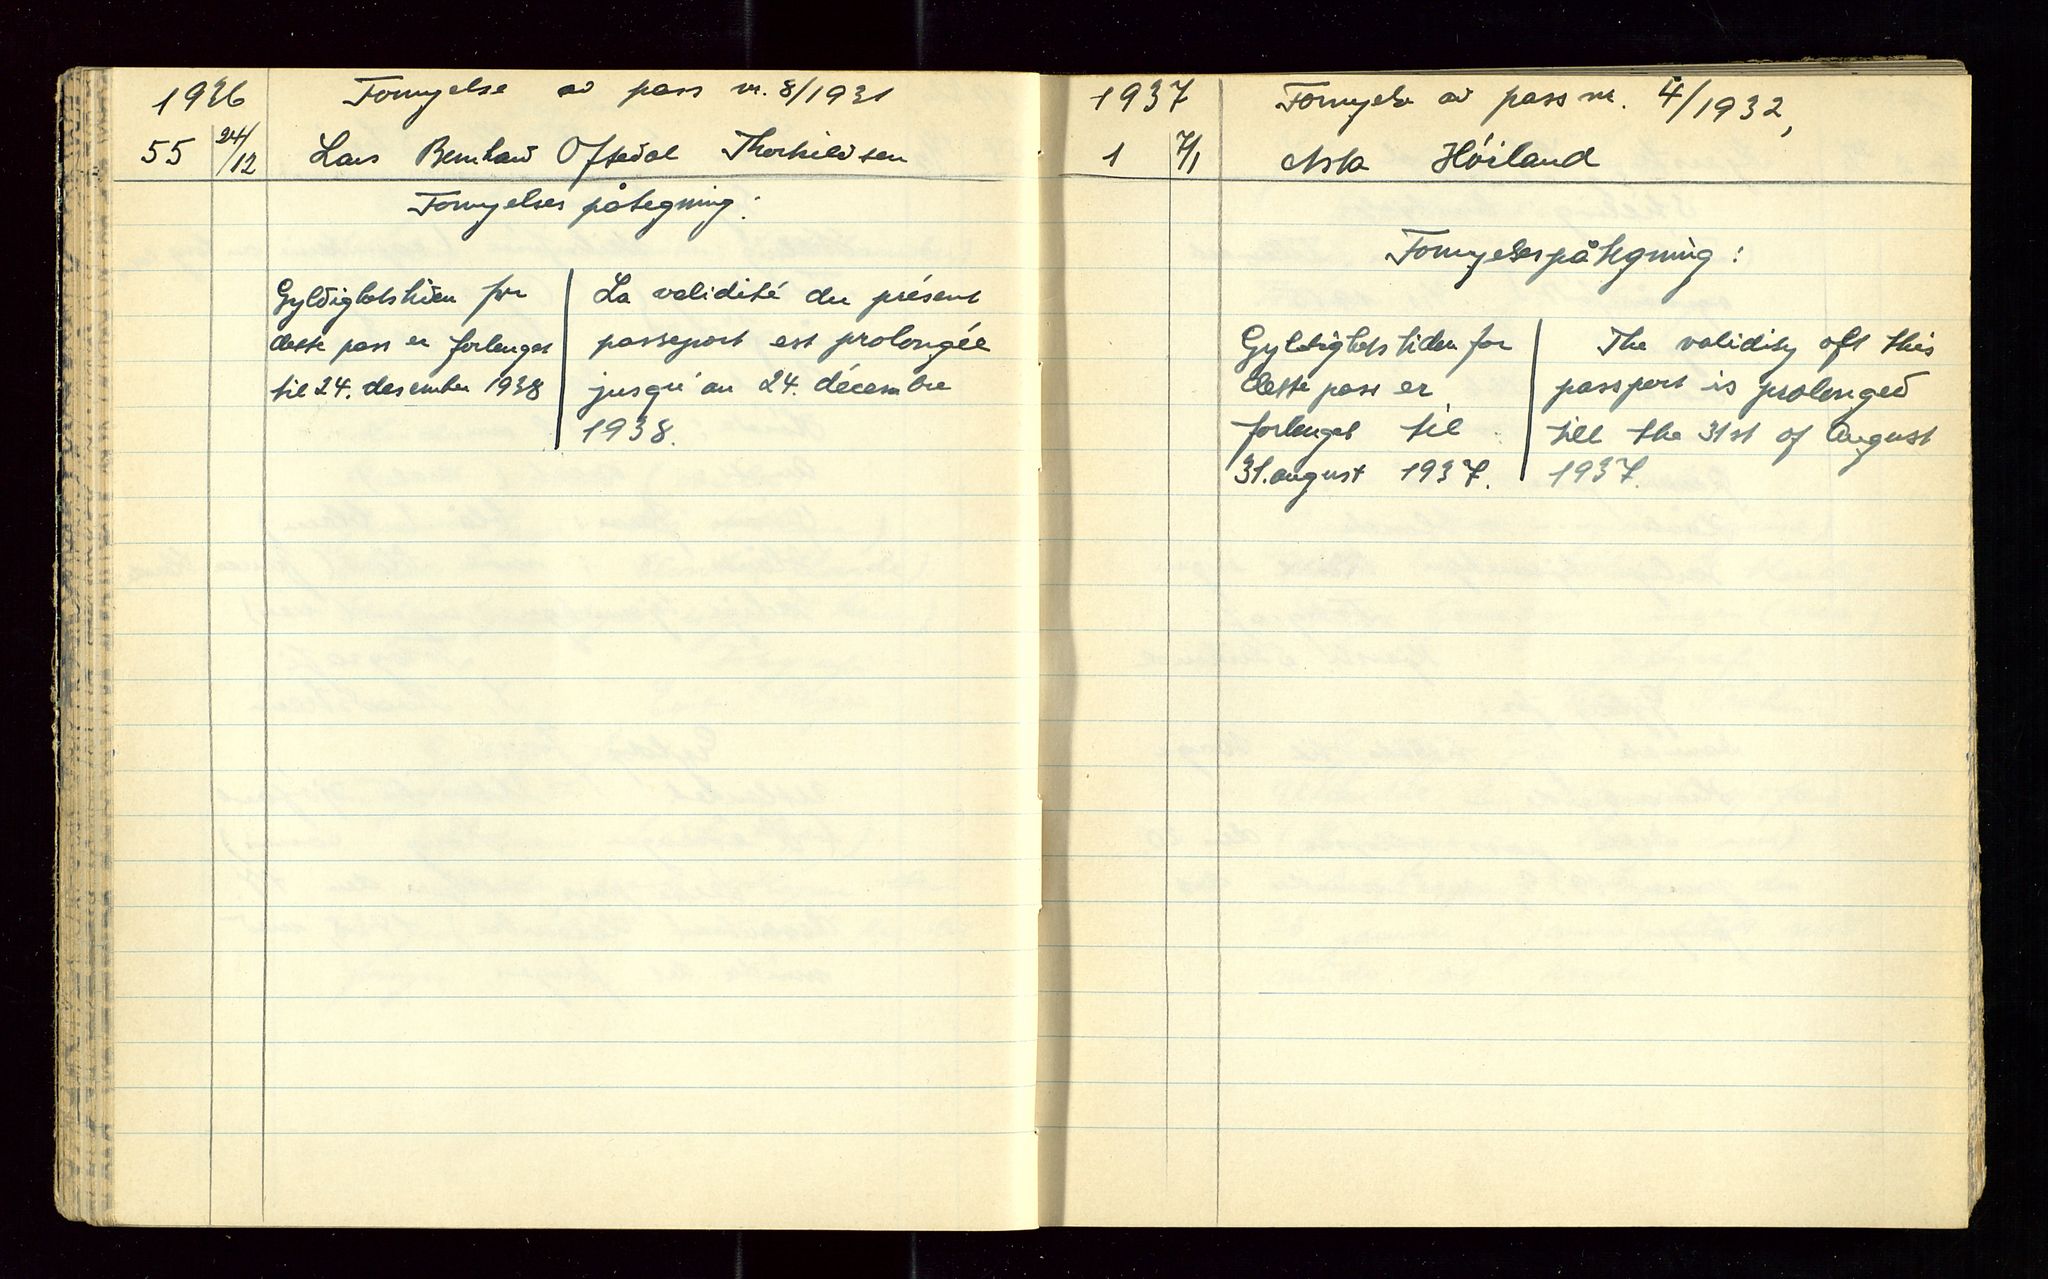 1936
Fornyelse av pass nr. 8/1931
55 24/12 Lars Bernhard Oftedal Thorkildsen
Fornyelses påtegning:
Gyldighetstiden for
dette pass er forlenget
til 24. desember 1938
La validité du présent
passeport est prolongée
jusqu'au 24. décembre
1938.
1937
Fornyelse av pass nr. 4/1932,
1 7/1 Asta Höiland
Fornyelsespåtegning:
Gyldighetstiden for
dette pass er
forlenget til
31. august 1937.
The validity oft this
passport is prolonged
till the 31st of August
1937.